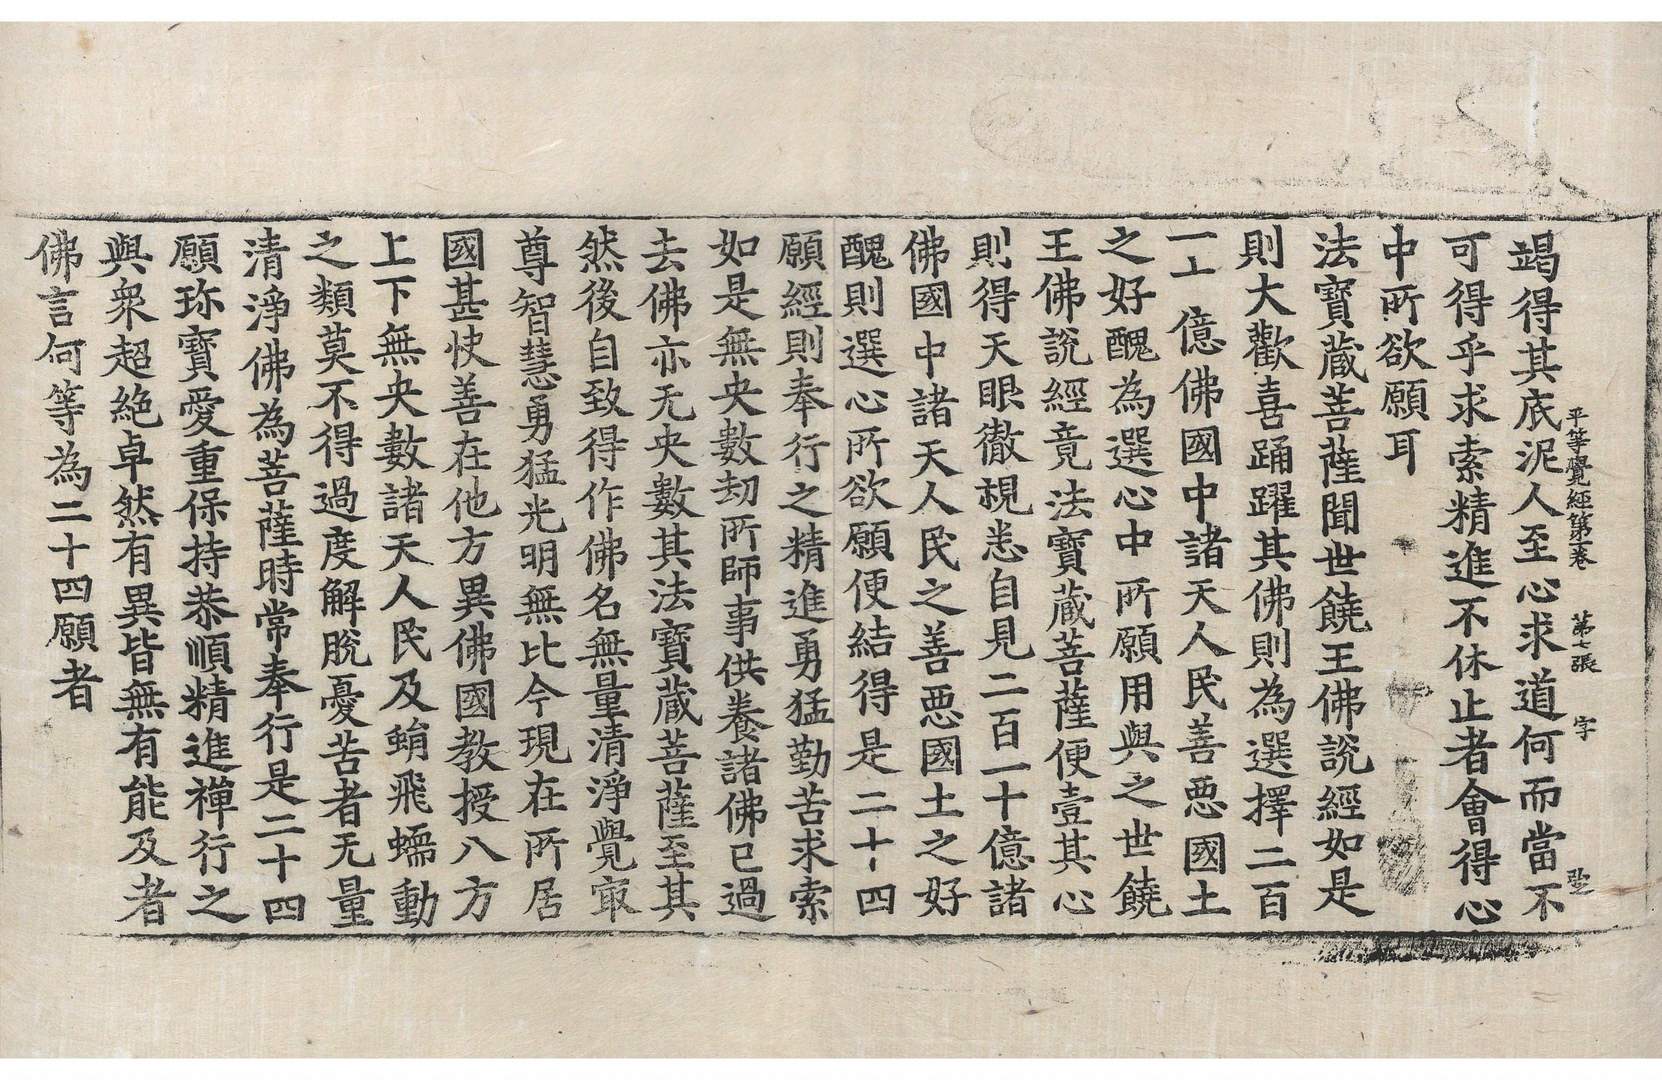 平等覺經第一卷 第七張 字
竭得其底泥人至心求道何而當不
可得乎求索精進不休止者會得心
中所欲願耳
法寶藏菩薩聞世饒王佛說經如是
則大歡喜踊躍其佛則為選擇二百
一十億佛國中諸天人民善惡國土
之好醜為選心中所願用與之世饒
王佛說經竟法寶藏菩薩便壹其心
則得天眼徹視悉自見二百一十億諸
佛國中諸天人民之善惡國土之好
醜則選心所欲願便結得是二十四
願經則奉行之精進勇猛勤苦求索
如是無央數劫所師事供養諸佛已過
去佛亦无央數其法寶藏菩薩至其
然後自致得作佛名無量清淨覺㝡
尊智慧勇猛光明無比今現在所居
國甚快善在他方異佛國教授八方
上下無央數諸天人民及蜎飛蠕動
之類莫不得過度解脫憂苦者无量
清淨佛為菩薩時常奉行是二十四
願珎寶愛重保持恭順精進禪行之
與衆超絶卓然有異皆無有能及者
佛言何等為二十四願者